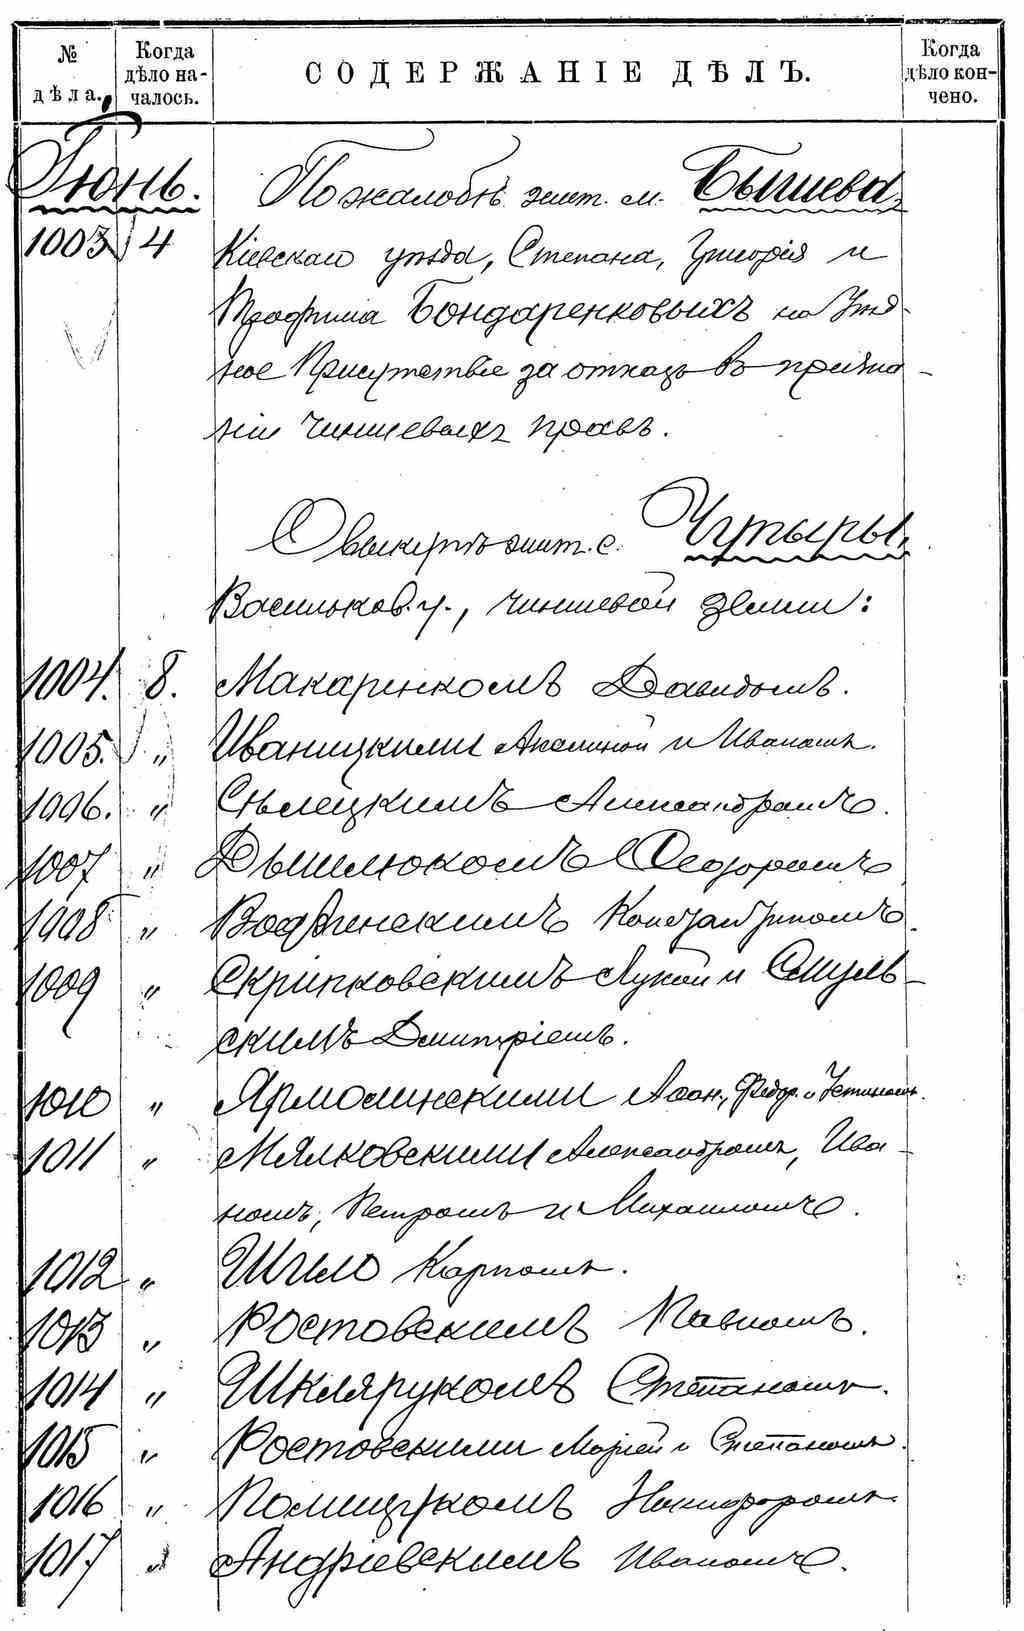 № дѣла.
Когда дѣло началось.
СОДЕРЖАНІЕ ДѢЛЪ.
Когда дѣло кончено.
Іюнь.
По жалобѣ жит. м. Бышева,
1003 4 Кіевскаго уѣзда, Степана, Григорія и
Трофима Бондаренковыхъ на Уѣзд-
ное Присутствіе за отказъ въ призна-
ніи чиншевыхъ правъ.
О выкупѣ жит. с. Чупыры,
Васильков. у., чиншевой земли:
1004. 8. Макаренкомъ Давидомъ.
1005. „ Иваницкими Акелиной и Иваномъ.
1006. „ Сѣлецкимъ Александромъ.
1007 „ Дышлюкомъ Ѳедоромъ
1008 „ Водзинскимъ Константиномъ.
1009 „ Скрипковскимъ Лукой и Смуль-
скимъ Дмитріемъ.
1010 „ Ярмолинскими Аѳан., Федор. и Устиномъ.
1011 „ Мялковскими Александромъ, Ива-
номъ, Петромъ и Михаиломъ.
1012 „ Шило Карпомъ.
1013 „ Ростовскимъ Павломъ.
1014 „ Шклярукомъ Степаномъ.
1015 „ Ростовскими Маріей и Степаномъ.
1016 „ Полищукомъ Никифоромъ.
1017 „ Андріевскимъ Иваномъ.